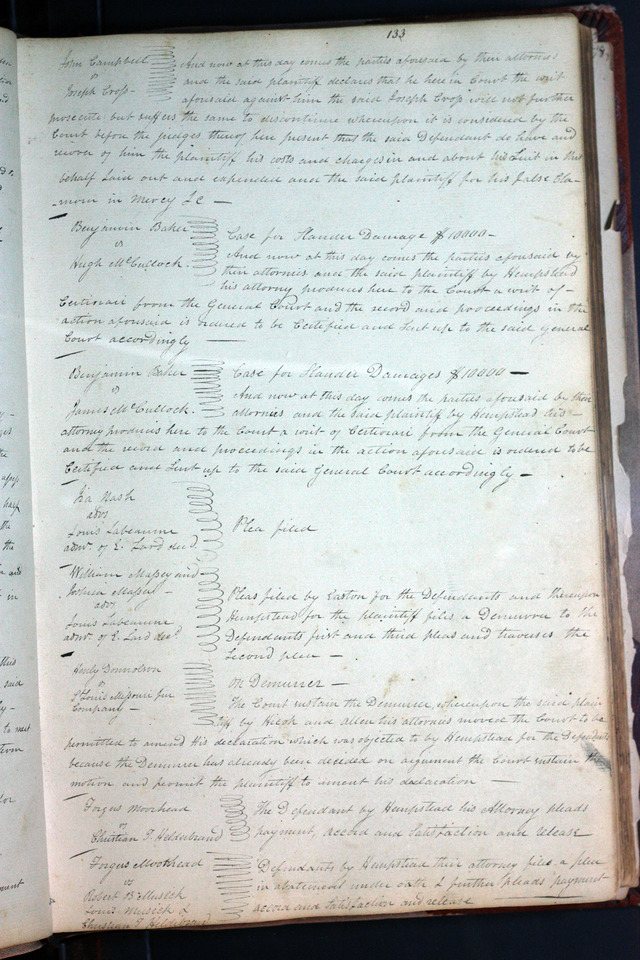 133
John Campbell
vs
Joseph Crop
And now at this day comes the parties aforesaid by their attornies
and the said plaintiff declares that he here in Court the writ
aforesaid against him the said Joseph Crop will not further
prosecute but suffers the same to discontinue whereupon it is considered by the
Court before the judges thereof here present that the said Defendant do have and
recover of him the plaintiff his costs and charges in and about his Suit in this
behalf laid out and expended and the said plaintiff for his false Cla-
-mour in Mercy &c —
Benjamin Baker
vs
Hugh McCullock
Case for Slander Damage $10000 —
And now at this day comes the parties aforesaid by
their attornies and the said plaintiff by Hempstead
his attorny produces here to the Court a writ of -
Certiorari from the General Court and the record and proceedings in the
action aforesaid is ordered to be Certified and Sent up to the said General
Court accordingly —
Benjamin Baker
vs
James McCullock.
Case for Slander Damages $10000 —
And now at this day comes the parties aforesaid by their
attornies and the said plaintiff by Hempstead his —
attorny produces here to the Court a writ of Certiorari from the General Court
and the record and proceedings in the action aforesaid is ordered to be
Certified and Sent up to the said General Court accordingly —
Ira Nash
advs
Louis Labeaume
admr. of E. Lard decd.
Plea filed
William Massey and
Joshua Massey —
advs
Louis Labeaume
admr. of E. Lard decd
Pleas filed by Easton for the Defendants and thereupon
Hempstead for the plaintiff files a Demurrer to the
Defendants first and third pleas and traverses the
Second plea —
Donnolson
vs
St Louis Missouri fur
Company —
On Demurrer —
The Court sustain the Demurrer, whereupon the said plain
tiff by and Allen his attornies moved the Court to be
permitted to amend His declaration which was objected to by Hempstead for the Defendants
because the Demurrer has already been decided on argument the Court sustain the
motion and permit the plaintiff to ament his declaration —
Fergus Moorhead
vs
Christian F. Helderbrand
The Defendant by Hempstead his Attorney pleads
payment, accord and Satisfaction and release
Fergus Moorhead
vs
Robert B. Musick
Louis Musick &
Christian F. Helderbrand
Defendants by Hempstead their attorney files a plea
in abatement under oath & further pleads payment
accord and Satisfaction and release